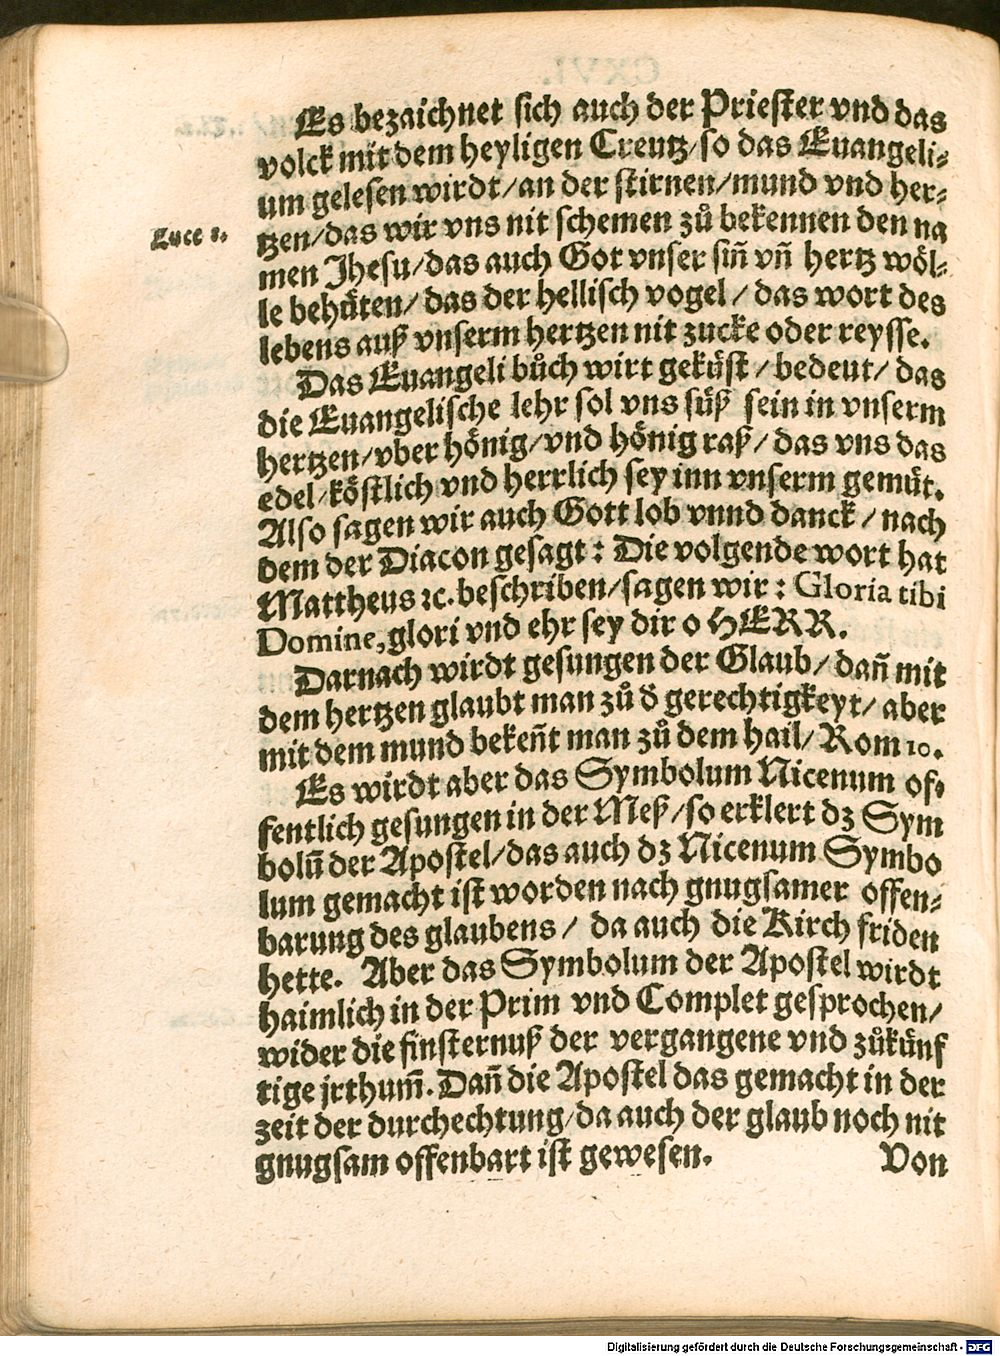 Es bezaichnet sich auch der Priester vnd das
volck mit dem heyligen Creutz/so das Euangeli⸗
um gelesen wirdt/an der stirnen/mund vnd her⸗
Luce 8.
tzen/das wir vns nit schemen zů bekennen den na
men Jhesu/das auch Got vnser siñ vñ hertz wöl⸗
le behüten/ das der hellisch vogel / das wort des
lebens auß vnserm hertzen nit zucke oder reysse.
Das Euangeli bůch wirt geküst / bedeut/ das
die Euangelische lehr sol vns süß sein in vnserm
hertzen/vber hönig/vnd hönig raß / das vns das
edel/köstlich vnd herrlich sey inn vnserm gemüt.
Also sagen wir auch Gott lob vnnd danck / nach
dem der Diacon gesagt : Die volgende wort hat
Mattheus ꝛc. beschriben/sagen wir : Gloria tibi
Domine, glori vnd ehr sey dir o HERR.
Darnach wirdt gesungen der Glaub/ dañ mit
dem hertzen glaubt man zů d̕ gerechtigkeyt/ aber
mit dem mund bekeñt man zů dem hail/ Rom 10.
Es wirdt aber das Symbolum Nicenum of⸗
fentlich gesungen in der Meß/so erklert dz Sym
bolũ der Apostel/das auch dz Nicenum Symbo
lum gemacht ist worden nach gnugsamer offen⸗
barung des glaubens / da auch die Kirch friden
hette. Aber das Symbolum der Apostel wirdt
haimlich in der Prim vnd Complet gesprochen/
wider die finsternuß der vergangene vnd zůkünf
tige jrthum̃. Dañ die Apostel das gemacht in der
zeit der durchechtung/da auch der glaub noch nit
gnugsam offenbart ist gewesen. Von
Digitalisierung gefördert durch die Deutsche Forschungsgemeinschaft - DFG